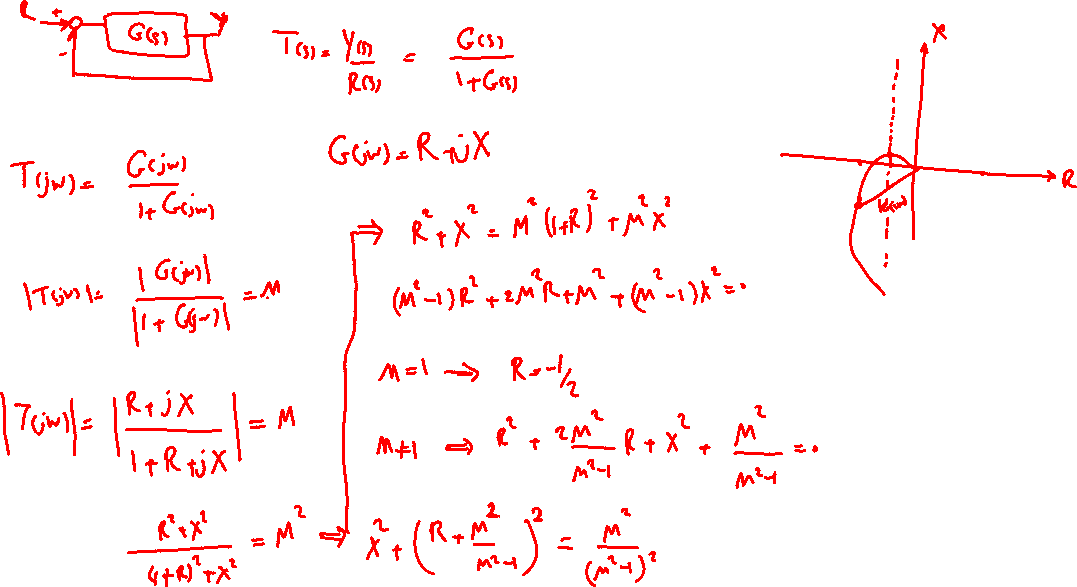 R + - G(s) Y
T(s) = Y(s)/R(s) = G(s)/(1+G(s))
T(jω) = G(jω)/(1+G(jω))
G(jω) = R+jX
|T(jω)| = |G(jω)|/|1+G(jω)| = M
|T(jω)| = |(R+jX)/(1+R+jX)| = M
(R²+X²)/((1+R)²+X²) = M² ⇒
⇒ R²+X² = M²(1+R)²+M²X²
(M²-1)R²+2M²R+M²+(M²-1)X²=0
M=1 → R=-1/2
M≠1 ⇒ R² + 2M²/(M²-1) R + X² + M²/(M²-1) = 0
X² + (R + M²/(M²-1))² = M²/(M²-1)²
X
R